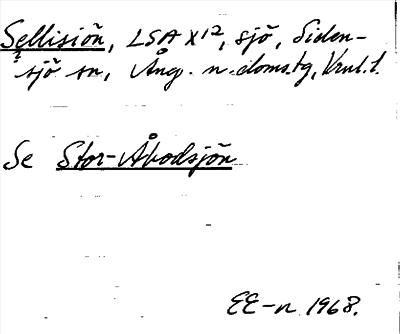 Sellisjön, LSA X12, sjö, Siden-
sjö sn, Ång. n. doms.tg, Vnl.l.
Se Stor-Åbodsjön
EE-n 1968.